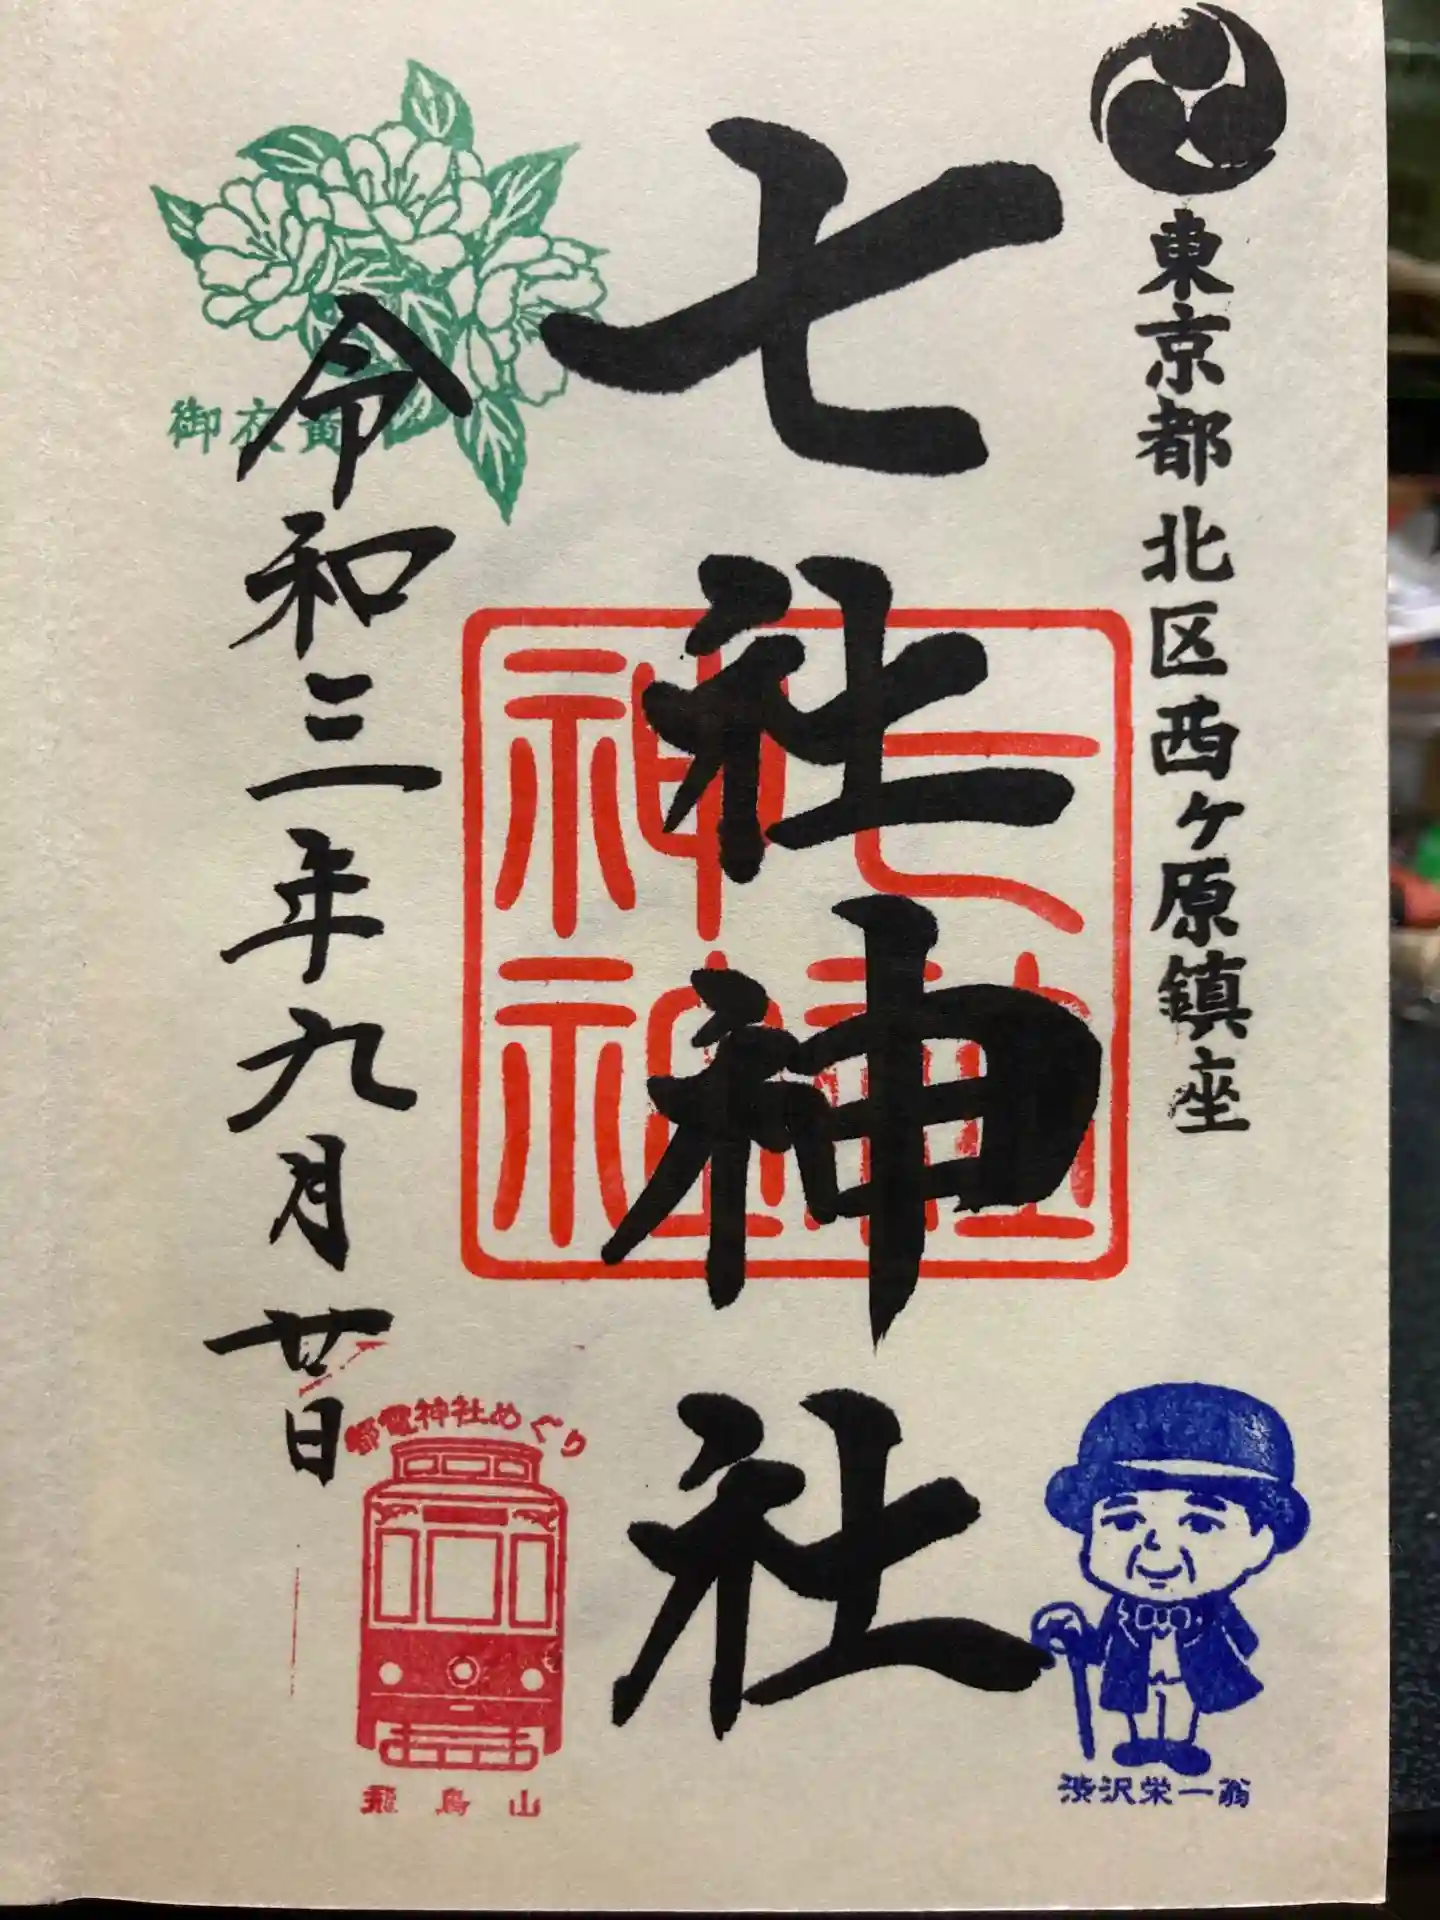 東京都北区西ケ原鎮座
七社神社
七社
神社
御衣黄
令和三年九月廿日
都電神社めぐり
飛鳥山
渋沢栄一翁